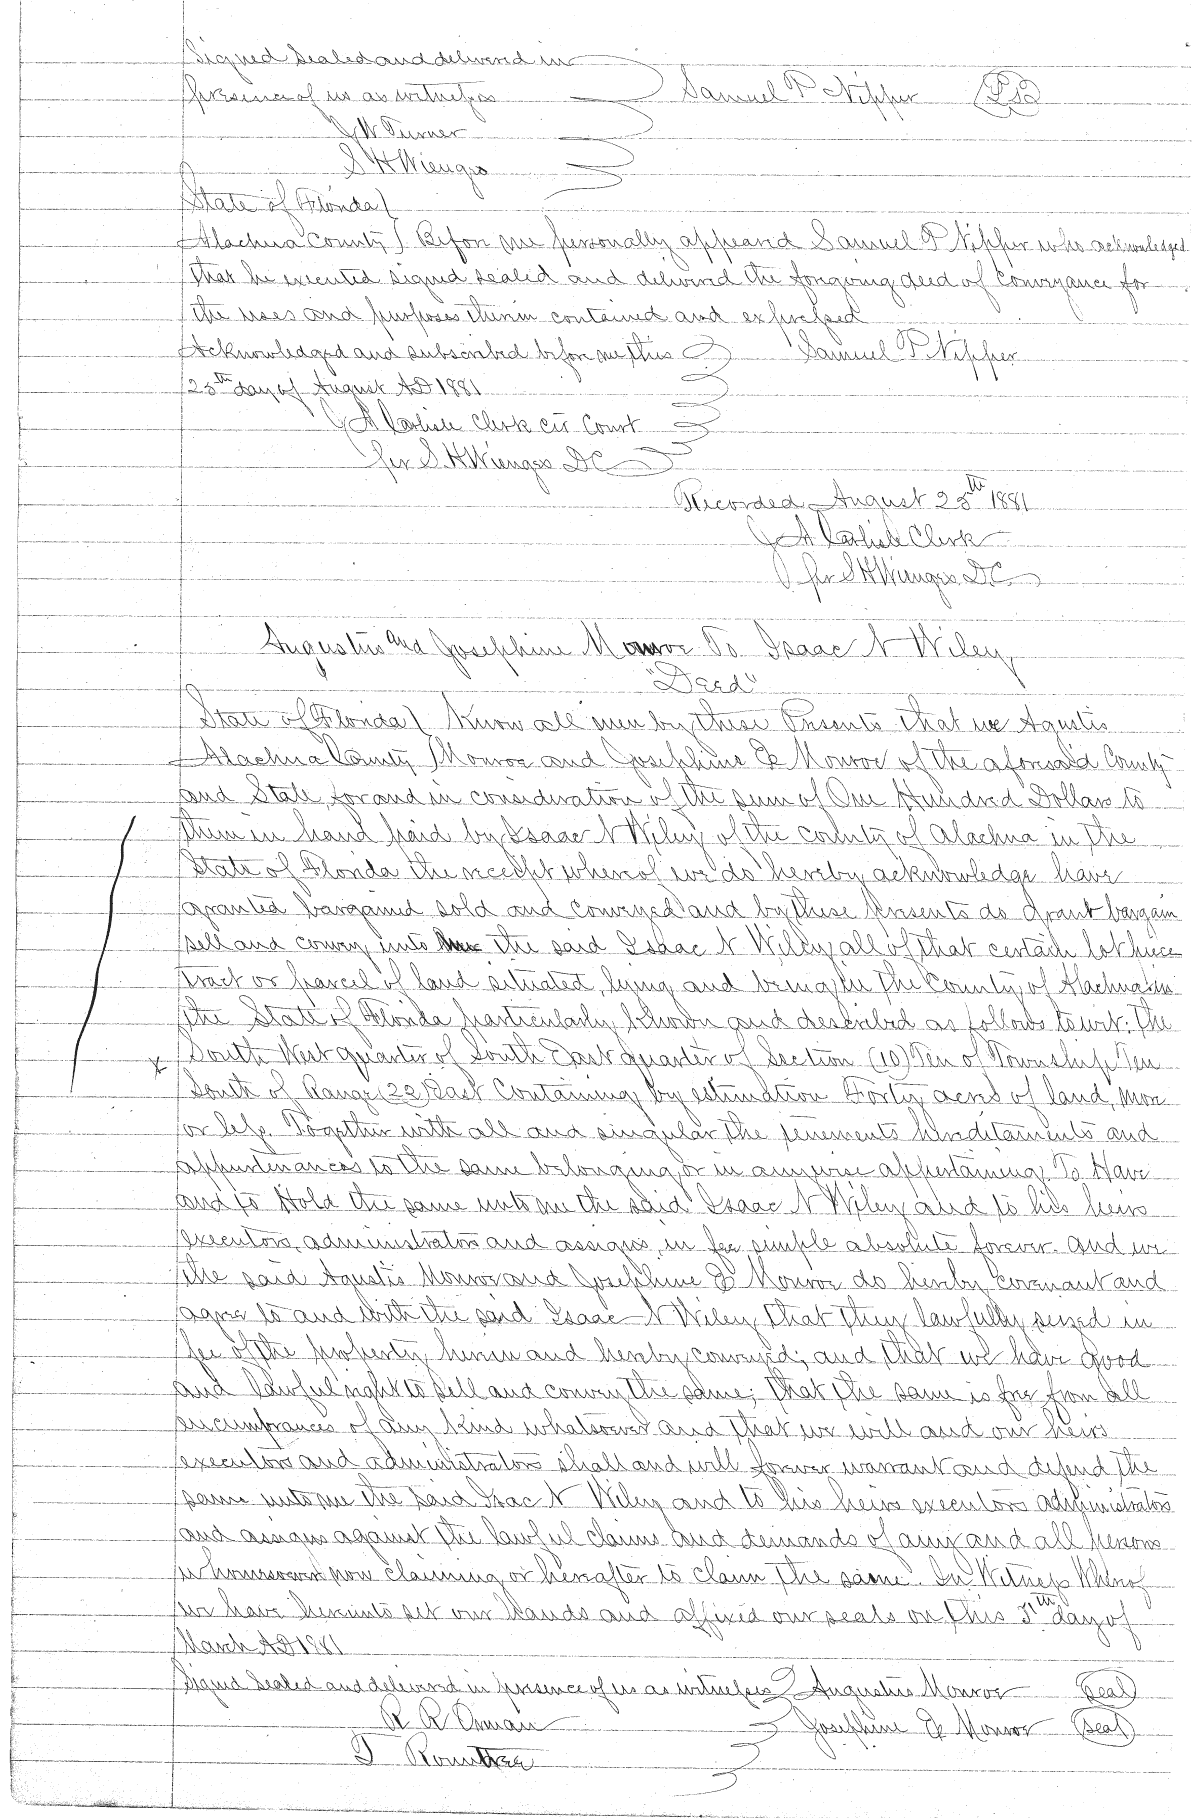 Signed Sealed and delivered in
presence of us as witness Samuel P Nipper LS
J W Turner
S H Wienges
State of Florida
Alachua County Before me personally appeared Samuel P Nipper who acknowledged
that he executed signed sealed and delivered the foregoing deed of conveyance for
the uses and purposes therein contained and expressed
Acknowledged and subscribed before me this Samuel P. Nipper
25th day of August AD 1881
J A Carlisle Clerk Cir Court
per S. H Wienges DC
Recorded August 25th 1881
J A Carlisle Clerk
per S H Wienges D.C.
Augustus and Josephine Monroe To Isaac N Wiley
"Deed"
State of Florida Know all men by these Presents that we Agustis
Alachua County Monroe and Josephine E Monroe of the aforesaid County
and State, for and in consideration of the sum of One Hundred Dollars to
them in hand paid by Isaac N Wiley of the county of Alachua in the
State of Florida the receipt whereof we do hereby acknowledge have
granted bargained sold and conveyed and by these presents do grant bargain
sell and convey unto the said Isaac N Wiley all of that certain lot piece
tract or parcel of land situated, lying and being in the County of Alachua in
the State of Florida particularly known and described as follows towit: The
x South West quarter of South East quarter of Section (10) Ten of Township Ten
South of Range (22) East Containing by estimation Forty acres of land, more
or less. Together with all and singular the tenements hereditaments and
appurtenances to the same belonging or in anywise appertaining. To Have
and to Hold the same unto me the said Isaac N Wiley and to his heirs
executors, administrators and assigns, in fee simple absolute forever. And we
the said Agustis Monroe and Josephine E Monroe do hereby covenant and
agree to and with the said Isaac N Wiley that they lawfully seized in
fee of the property herein and hereby conveyed; and that we have good
and lawful right to sell and convey the same; that the same is free from all
incumbrances of any kind whatsoever and that we will and our heirs
executors and administrators shall and will forever warrant and defend the
same unto me the said Isac N Wiley and to his heirs executors administrators
and assigns against the lawful claims and demands of any and all persons
whomsoever now claiming or hereafter to claim the same. In Witness Whereof
we have hereunto set our hands and affixed our seals on this 5th day of
March AD 1881
Signed Sealed and delivered in presence of us as witnesses Augustus Monroe Seal
R R Josephine E Monroe Seal
T Rountree